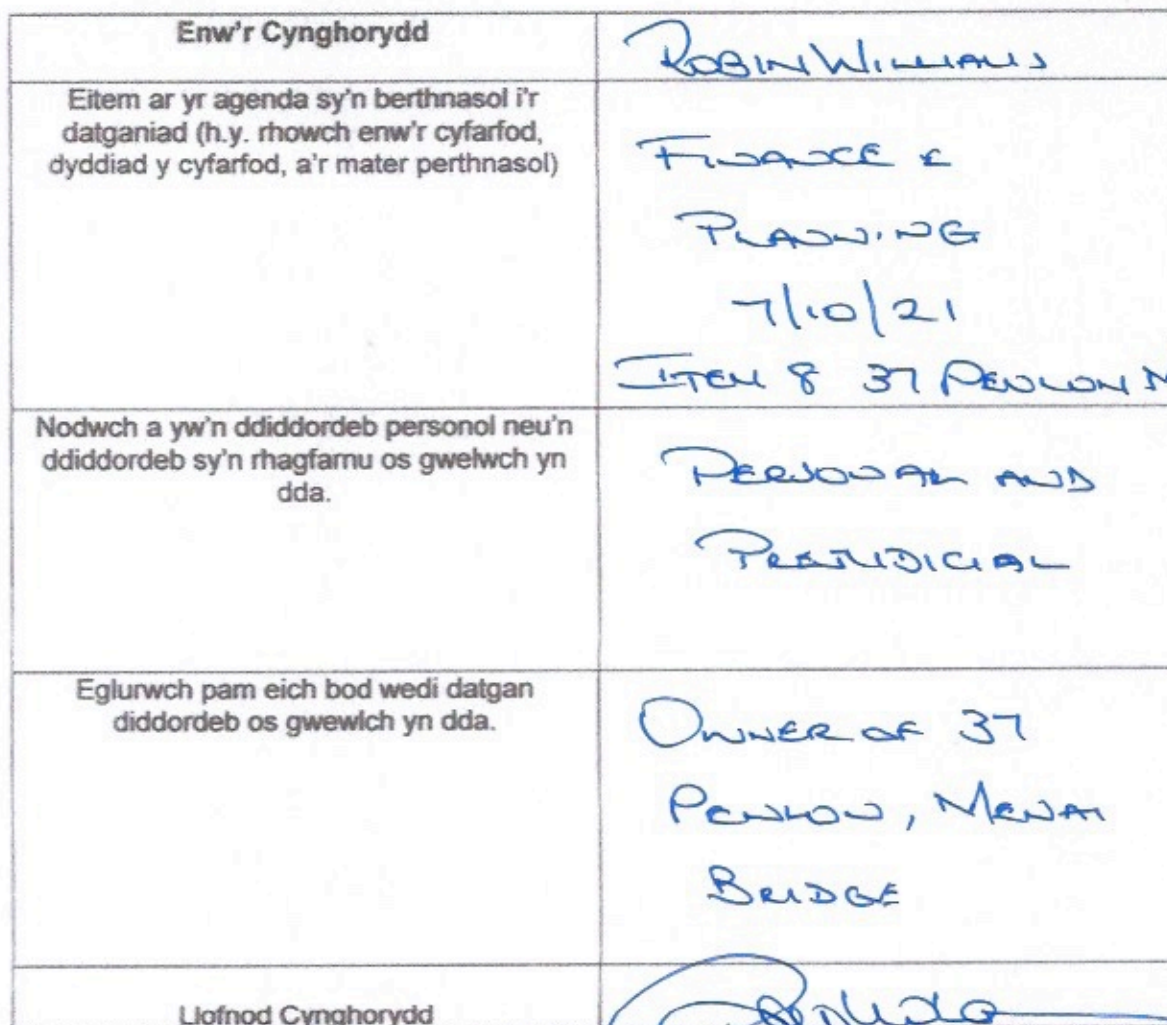 Enw'r Cynghorydd
ROBIN WILLIAMS
Eitem ar yr agenda sy'n berthnasol i'r
datganiad (h.y. rhowch enw'r cyfarfod,
dyddiad y cyfarfod, a'r mater perthnasol)
FINANCE &
PLANNING
7/10/21
ITEM 8 37 PENLON M
Nodwch a yw'n ddiddordeb personol neu'n
ddiddordeb sy'n rhagfarnu os gwelwch yn
dda.
PERSONAL AND
PREJUDICIAL
Eglurwch pam eich bod wedi datgan
diddordeb os gwewlch yn dda.
OWNER OF 37
PENLON, MENAI
BRIDGE
Llofnod Cynghorydd